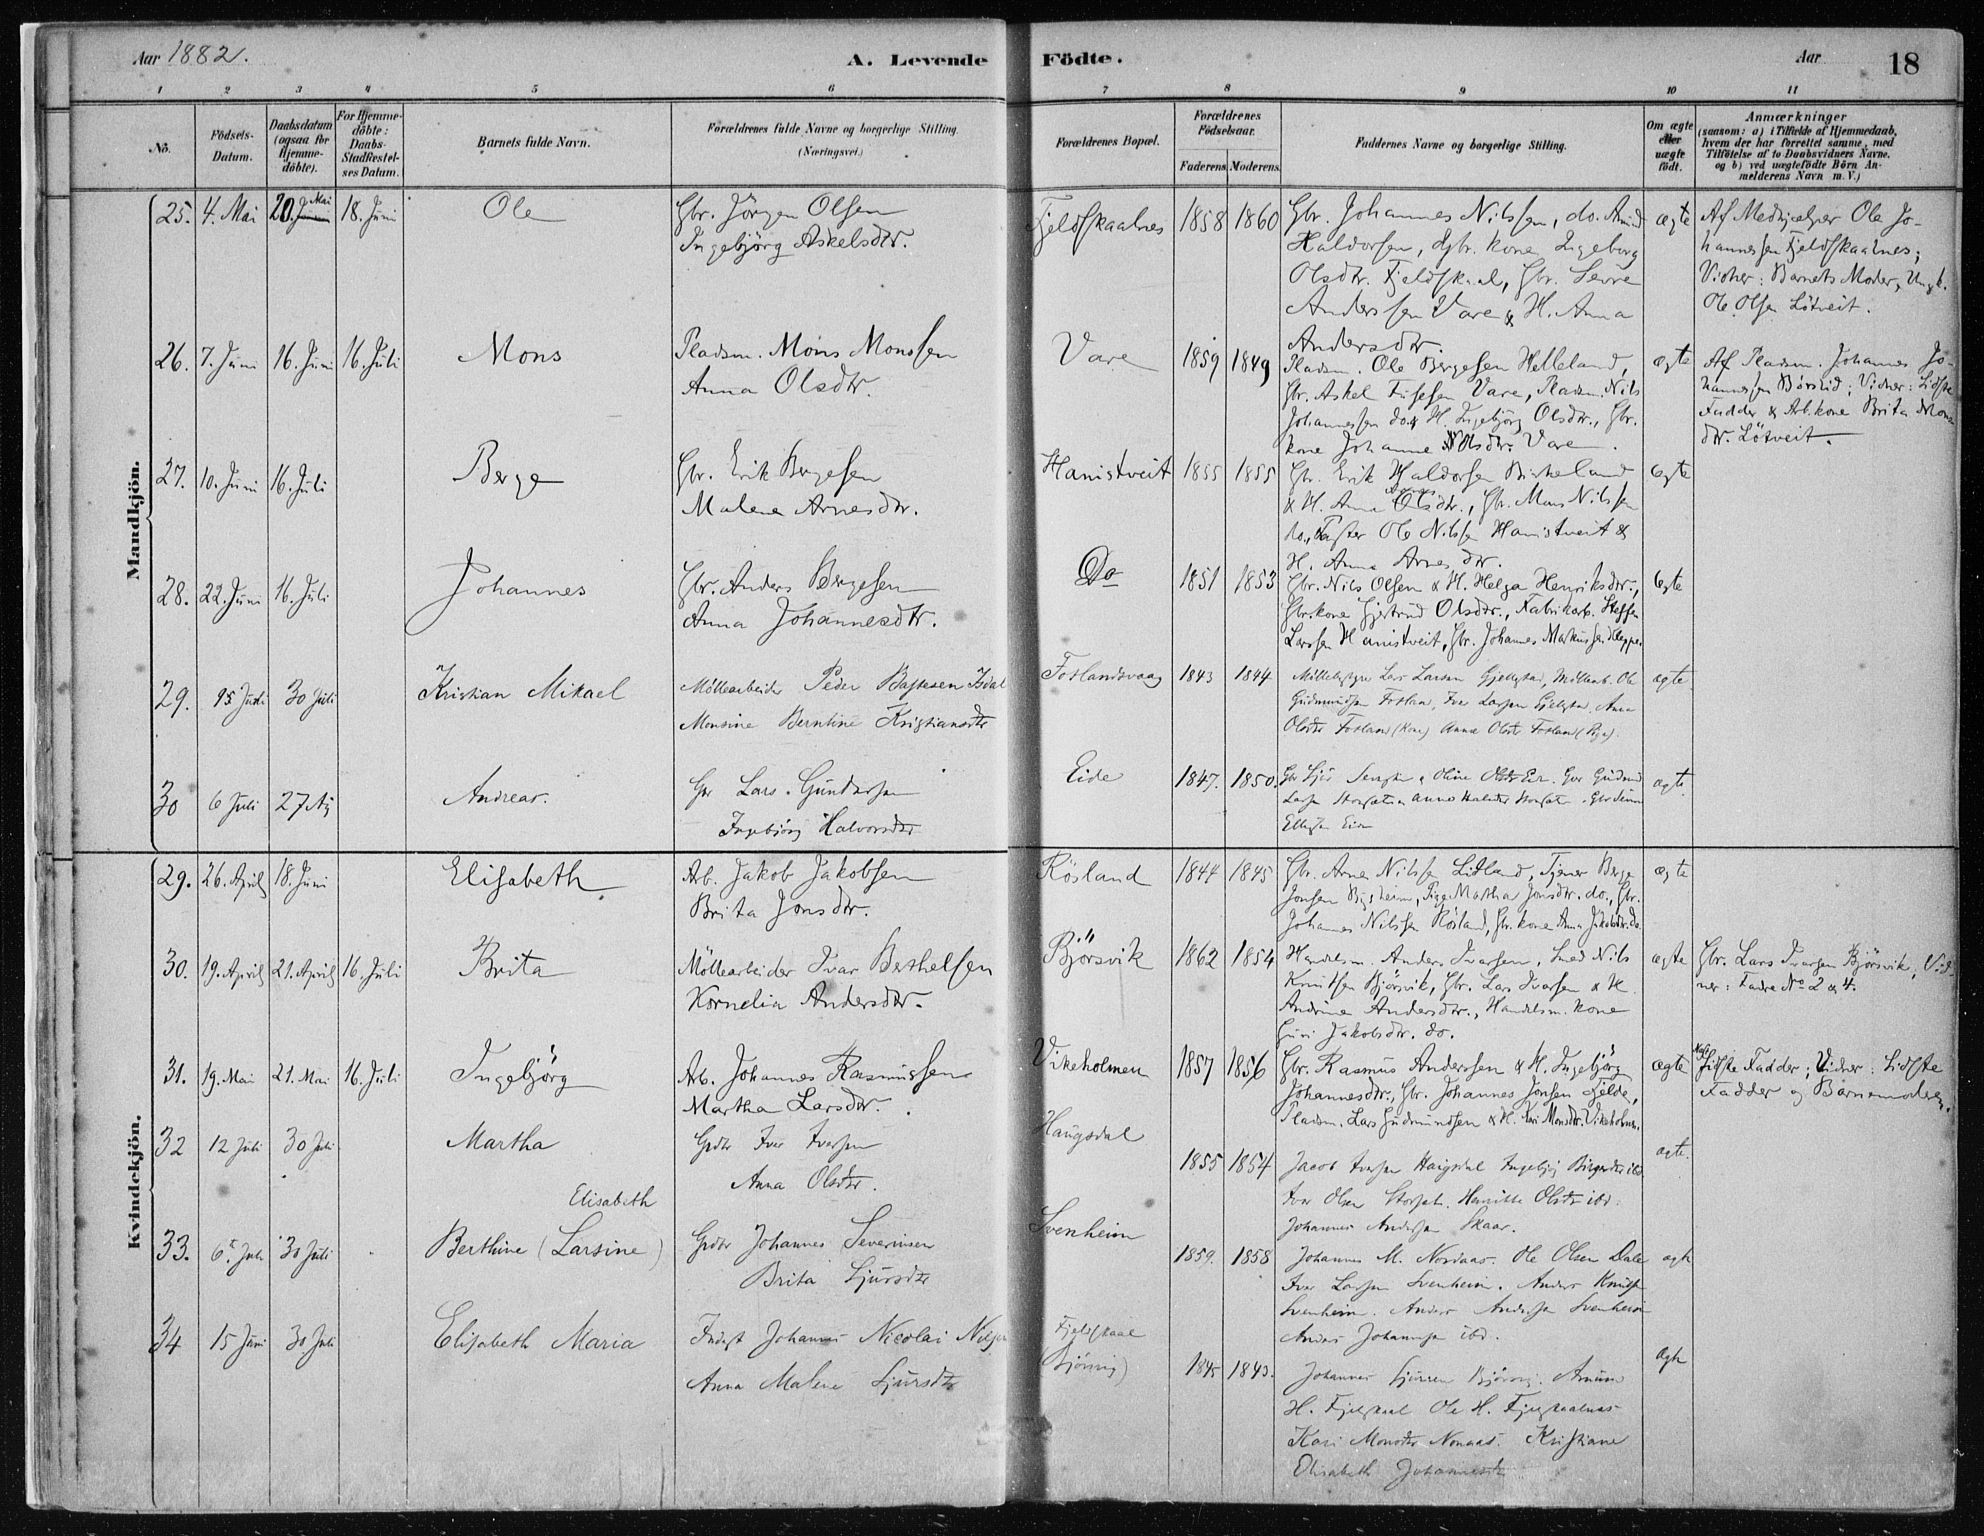 Aar 1882.
A. Levende Födte.
Aar
18
1 2 3 4 5 6 7 8 9 10 11
No.
Födsels-Datum.
Daabsdatum (ogsaa for Hjemme-döbte).
For Hjemme-döbte: Daabs-Stadfæstel-ses Datum.
Barnets fulde Navn.
Forældrenes fulde Navne og borgerlige Stilling. (Næringsvei.)
Forældrenes Bopæl.
Forældrenes Födselsaar.
Faderens Moderens
Faddernes Navne og borgerlige Stilling.
Om ægte eller uægte födt.
Anmærkninger
(saasom: a) i Tilfælde af Hjemmedaab, hvem der har forrettet samme, med Tilföielse af to Daabsvidners Navne, og b) ved uægtefödte Börn An-melderens Navn m. V.)
Mandkjön.
25. 4. Mai 20. Mai 18. Juni Ole
Gbr. Jörgen Olsen
Ingebjörg Askelsdtr.
Fjeldskaalnes 1858 1860
Gbr. Johannes Nilssen, do. Amund
Haldorsen, Gbr. kone Ingeborg
Olsdtr. Fjeldskaal, Gbr. Sevre
Anderssen Vare & H. Anna
Andersdtr.
ægte
Af Medhjælper Ole Jo-
hannessen Fjeldskaalnes;
Vidner: Barnets Moder, Ungk.
Ole Olsen Lötveit.
26. 7. Juni 16. Juni 16. Juli Mons
Pladsm. Mons Monssen
Anna Olsdtr.
Vare 1859 1849
Pladsm. Ole Bergesen Helleland,
Gbr. Askel Vare, Pladsm. Nils
Johannessen do. & H. Ingebjörg Olsdtr., Gbr.
kone Johanne Olsdtr. Vare.
ægte
Af Pladsm. Johannes Jo-
hannessen Börslid; Vidner: Sidste
Fadder & Arb. kone Brita Mons
dtr. Lötveit.
27. 10. Juni 16. Juli Berge
Gbr. Erik Bergesen
Malene Arnesdtr.
Hanistveit 1855 1855
Gbr. Erik Haldorsen Birkeland
& H. Anna Olsdtr., Gbr. Mons Nilssen
do., Ole Nilssen Hanistveit &
H. Anna Arnesdtr.
ægte
28. 22. Juni 16. Juli Johannes
Gbr. Anders Bergesen
Anna Johannesdtr.
Do 1851 1853
Gbr. Nils Olsen & H. Helga Henriksdtr.,
Gbr. kone Gjertrud Olsdtr., Fabrikarb. Steffen
Larssen Hanistveit, Gbr. Johannes Markussen Kleppe.
ægte
29. 15 Juni 30 Juli Kristian Mikael
Möllearbeider Peder Isdal
Monsine Berntine Kristiansdtr
Fotlandsvaag 1843 1844
Lars Larsen Gjellestad, Möllearb. Ole
Gudmundsen Fotland, Iver Larsen Anna
Olsdtr Fotland (Kone) Anna Olsdtr Fotland (Pige).
ægte
30 6 Juli 27 Aug Andreas.
Gbr Lars Gundersen
Ingebjörg Halvorsdtr
Eide 1847. 1850.
Olsdtr Gudmund
Anna
ægte.
Kvindekjön.
29. 26. April 18. Juni Elisabeth
Arb. Jakob Jakobsen
Brita Jonsdtr.
Rösland 1844 1845
Gbr. Arne Nilssen Lidland, Tjener Berge
Jonsen Pige Martha Jonsdtr. do., Gbr.
Johannes Nilssen Rösland, Gbr. kone Anna Jakobsdtr. do.
ægte
30. 19. April 21. April 16. Juli Brita
Möllearbeider Ivar Berthelsen
Kornelia Andersdtr.
Björsvik 1862 1854
Handelsm. Anders Ivarsen, Smed Nils
Knutsen Björsvik, Gbr. Lars Ivarsen & H.
Andrine Andersdtr., Handelsm. kone
Guri Jakobsdtr. do.
ægte
Gbr. Lars Ivarsen Björsvik, Vid-
ner: Fadre No 2 & 4.
31. 19. Mai 21. Mai 16. Juli Ingebjörg
Arb. Johannes Rasmussen
Martha Larsdtr.
Vikeholmen 1857 1856
Gbr. Rasmus Anderssen & H. Ingebjörg
Johannesdtr., Gbr. Johannes Jonsen Fjelde,
Pladsm. Lars Gudmundsen & H. Kari Monsdtr. Vikeholmen.
ægte
Sidste Fadder; Vidner: Sidste
Fadder og Barnemoderen.
32 12 Juli 30 Juli Martha
Grdbr Iver Iversen
Anna Olsdtr.
Haugsdal 1855 1854
Jacob Iversen Haugsdal Ingebjörg ibd.
Iver Olsen Henrikke Olsdtr ibd.
Johannes Andersen Skaar.
ægte.
33. 6 Juli 30 Juli Berthine (Larsine) Elisabeth
Grdbr Johannes Severinsen
Brita Sjursdtr
Svenheim 1859. 1858
Johannes M. Nordaas. Ole Olsen Dale
Iver Larsen Svenheim. Anders Knutsen
Svenheim. Anders Andersen Svenheim
Anders Johannesen ibd.
ægte
34 15 Juni 30 Juli Elisabeth Maria
Inderst Johannes Nicolai Nilsen
Anna Malene Sjursdtr
Fjeldskaal
(Björsvig) 1845 1843.
Johannes Sjursen Björsvig. Amund
H. Fjeldskaal Ole H. Fjeldskaalnes
Kari Monsdtr Kristiane
Elisabeth Johannesdtr
ægte